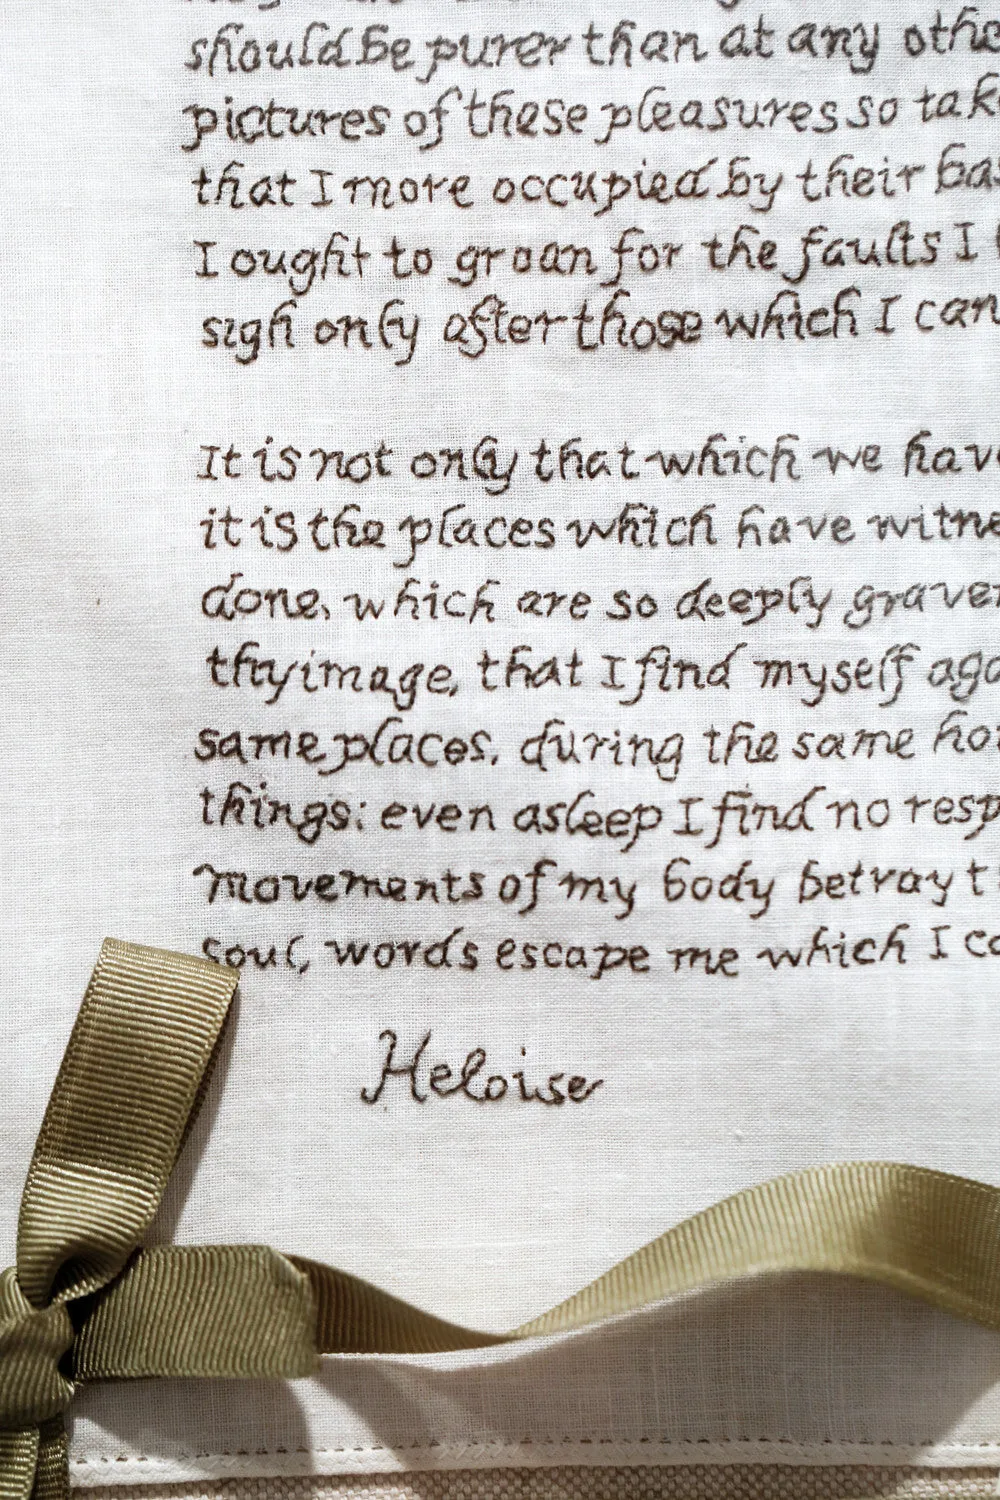 should be purer than at any othe
pictures of these pleasures so tak
that I more occupied by their bas
I ought to groan for the faults I
sigh only after those which I can
It is not only that which we have
it is the places which have witne
done, which are so deeply graven
thy image, that I find myself aga
same places, during the same hou
things: even asleep I find no resp
movements of my body betray t
soul, words escape me which I ca
Heloise